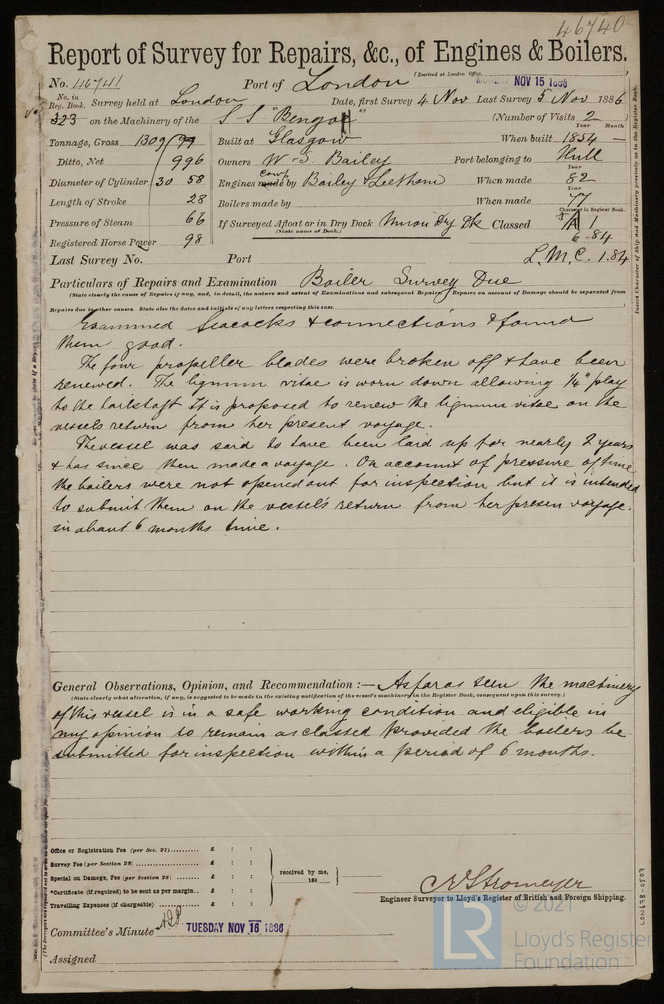 46740
Report of Survey for Repairs, &c., of Engines & Boilers.
(Received at London Office, NOV 15 1886
No. 46741 Port of London
No. in Reg. Book. Survey held at London Date, first Survey 4 Nov Last Survey 5 Nov 1886
323 on the Machinery of the S S "Bengore" (Number of Visits 2
Year Month
Tonnage, Gross 1309/ Built at Glasgow When built 1854 —
Ditto, Net 996 Owners W. S. Bailey Port belonging to Hull
Year
Diameter of Cylinder 30 58 Engines made by Comp Bailey & Leetham When made 82
Year
Length of Stroke 28 Boilers made by When made 77
Character in Register Book.
Pressure of Steam 66 If Surveyed Afloat or in Dry Dock Union Dry Dk Classed A 1
(State name of Dock.)
6.84
Registered Horse Power 98
Last Survey No. Port L.M.C. 1.84
Particulars of Repairs and Examination Boiler Survey Due
(State clearly the cause of Repairs if any, and, in detail, the nature and extent of Examinations and subsequent Repairs. Repairs on account of Damage should be separated from
Repairs due to other causes. State also the dates and initials of any letters respecting this case.
Examined Seacocks & connections & found
them good.
The four propeller blades were broken off & have been
renewed. The lignum vitae is worn down allowing 1/4" play
to the tailshaft It is proposed to renew the lignum vitae on the
vessels return from her present voyage.
The vessel was said to have been laid up for nearly 2 years
& has since then made a voyage. On account of pressure of time
the boilers were not opened out for inspection but it is intended
to submit them on the vessel's return from her presen voyage.
in about 6 months time.
General Observations, Opinion, and Recommendation :— As far as seen the machinery
(State clearly what alteration, if any, is suggested to be made in the existing notification of the vessel's machinery in the Register Book, consequent upon this survey.)
of this vessel is in a safe working condition and eligible in
my opinion to remain as classed provided the boilers be
submitted for inspection within a period of 6 months.
Office or Registration Fee (per Sec. 27) £ : :
Survey Fee (per Section 28) £ : :
Special on Damage, Fee (per Section 28) £ : :
Certificate (if required) to be sent as per margin £ : :
Travelling Expenses (if chargeable) £ : :
received by me,
188
C E Stromeyer
Engineer Surveyor to Lloyd's Register of British and Foreign Shipping.
Committee's Minute TUESDAY NOV 16 1886
Assigned
Insert Character of Ship and Machinery precisely as in the Register Book.
LON678-0507
LR
© 2021
Lloyd's Register
Foundation